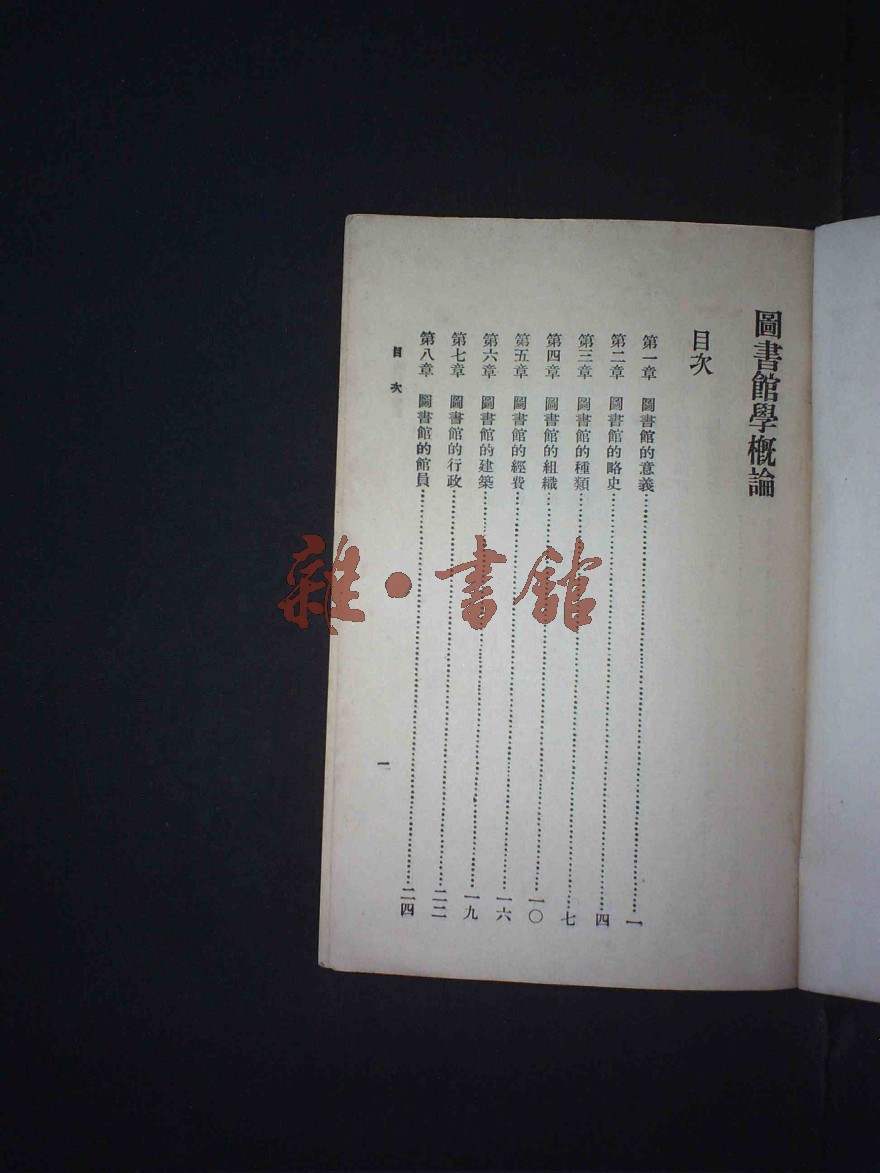 圖書館學概論
目次
第一章 圖書館的意義……一
第二章 圖書館的略史……四
第三章 圖書館的種類……七
第四章 圖書館的組織……一〇
第五章 圖書館的經費……一六
第六章 圖書館的建築……一九
第七章 圖書館的行政……二二
第八章 圖書館的館員……二四
目次
一
雜·書館